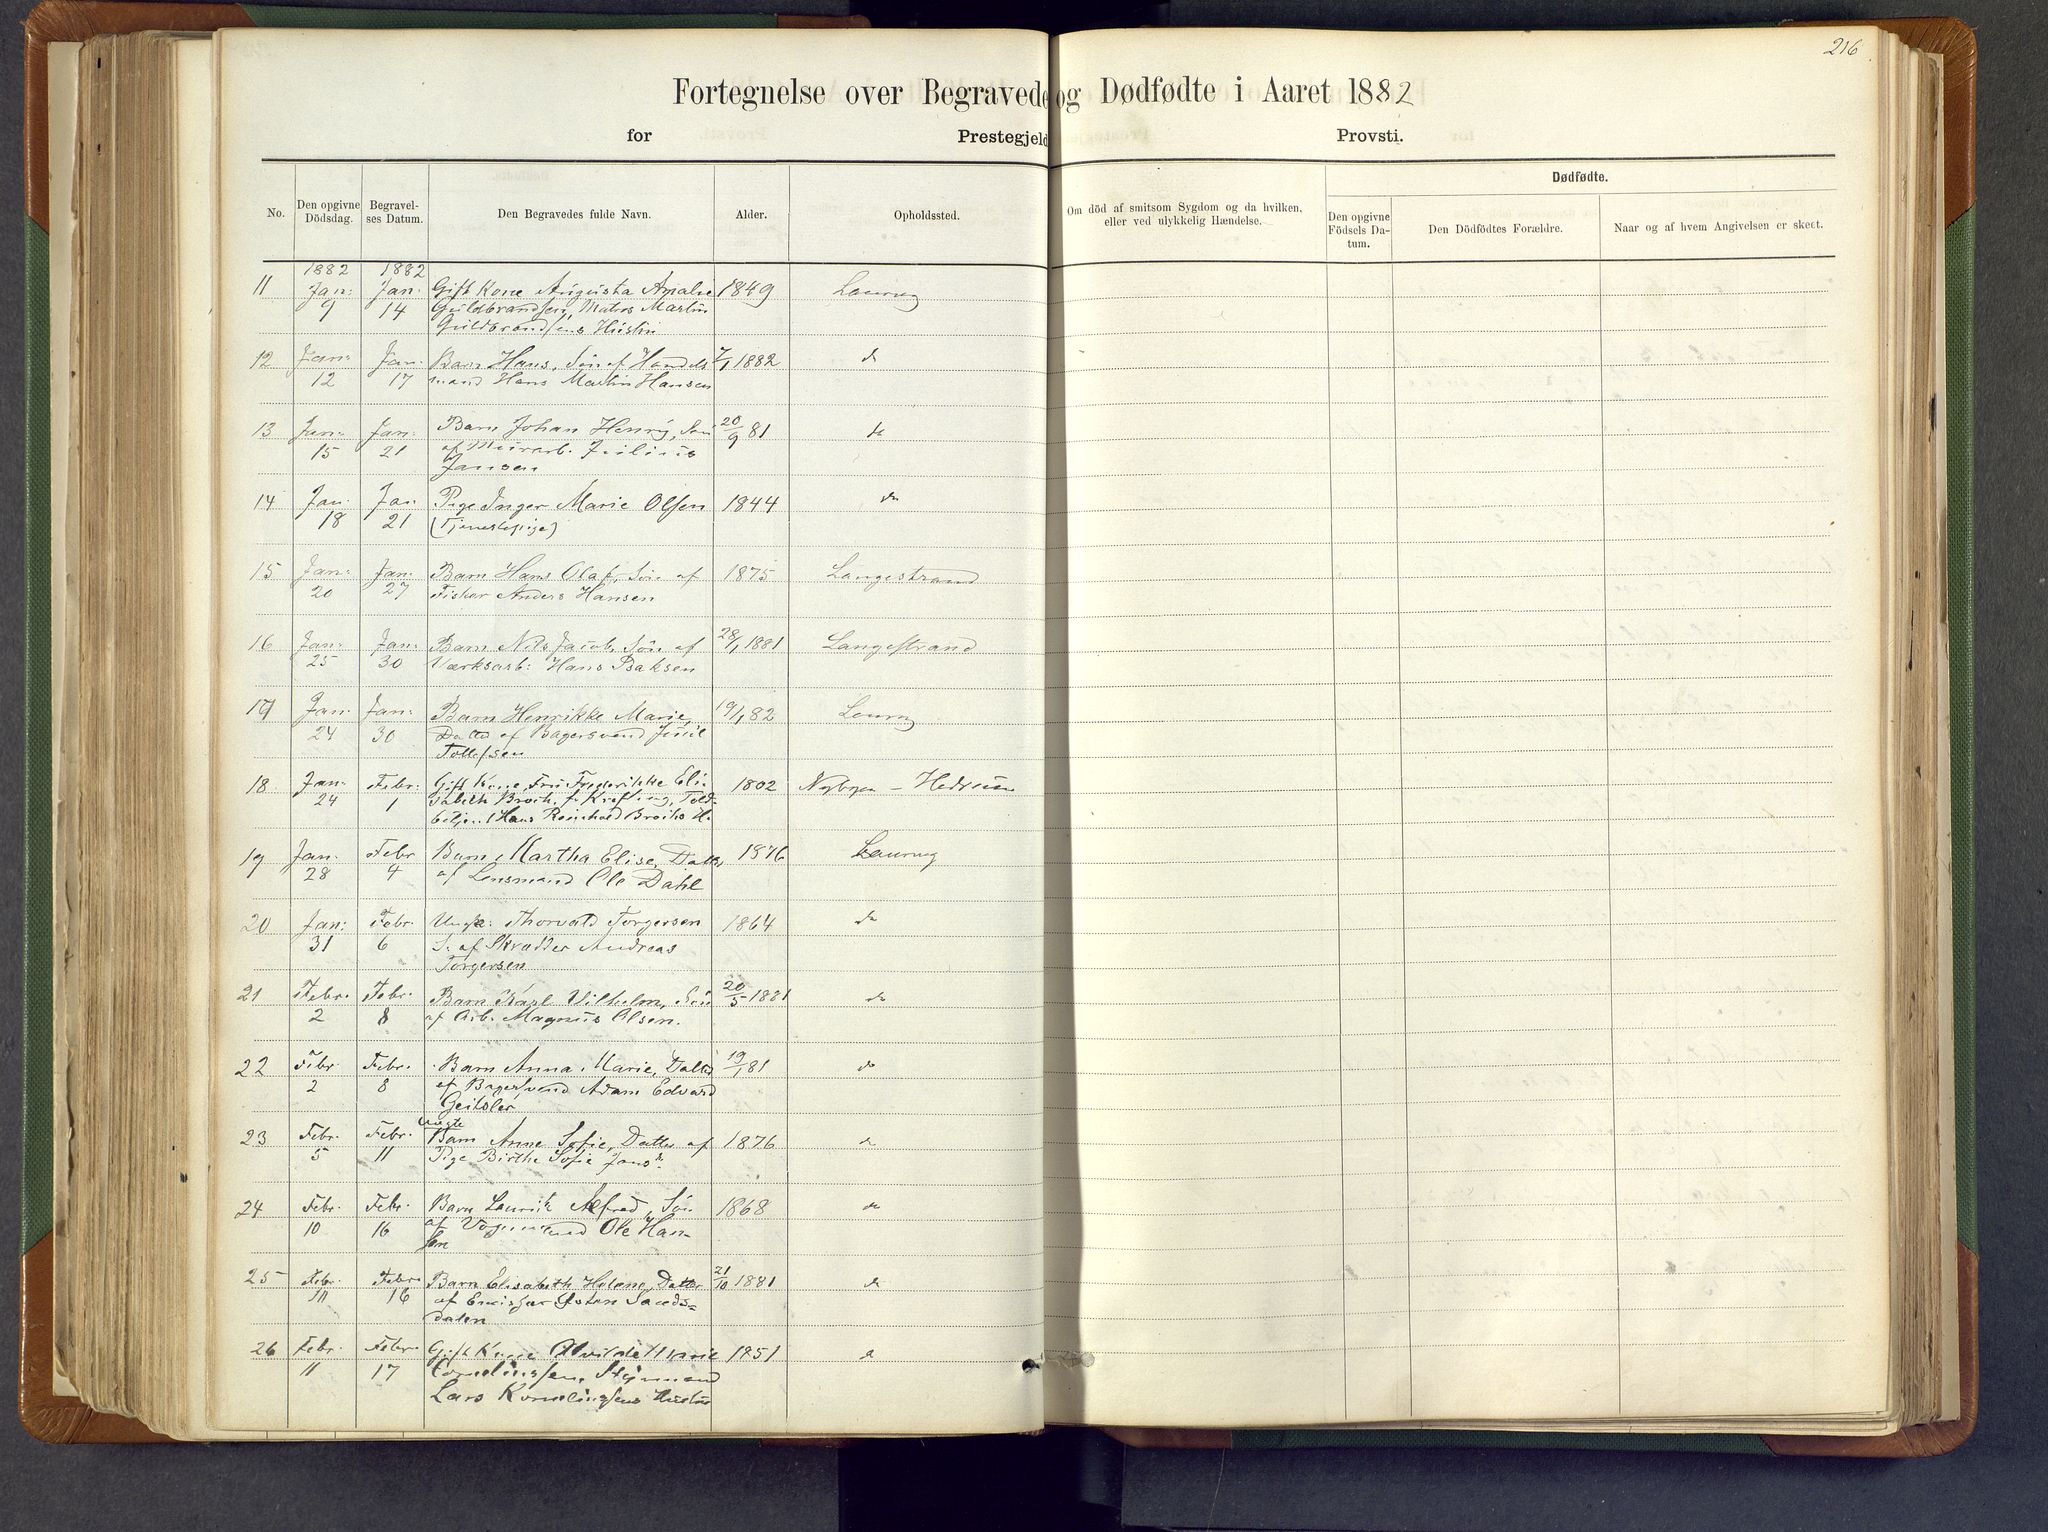 216
Fortegnelse over Begravede og Dødfødte i Aaret 1882
for Prestegjeld Provsti.
No.
Den opgivne Dödsdag.
Begravelses Datum.
Den Begravedes fulde Navn.
Alder.
Opholdssted.
Om död af smitsom Sygdom og da hvilken, eller ved ulykkelig Hændelse.
Dødfødte.
Den opgivne Födsels Datum.
Den Dödfödtes Forældre.
Naar og af hvem Angivelsen er skeet.
1882 1882
11 Jan: Jan: Gift Kone Augusta Amalie 1849 Laurvig
9 14 Guldbrandsen, Matros Martin
Guldbrandsens Hustru
12 Jan: Jan: Barn Hans, Sön af Handels 7/1 1882 do
12 17 mand Hans Martin Hansen
13 Jan: Jan: Barn Johan Henry, Sön 20/9 81 do
15 21 af Murarb. Julius
Jansen
14 Jan. Jan. Pige Inger Marie Olsen 1844 do
18 21 (Tjenestepige)
15 Jan: Jan: Barn Hans Olaf, Sön af 1875 Langestrand
20 27 Fisker Anders Hansen
16 Jan: Jan: Barn Nils Jacob, Sön af 28/1 1881 Langestrand
25 30 Værksarb: Hans Baksen
17 Jan: Jan: Barn Henrikke Marie, 19/1 82 Laurvig
24 30 Datter af Bagersvend Juul
Tollefsen
18 Jan: Febr: Gift Kone, Fru Frederikke Eli- 1802 Nybyen - Hedrum
24 1 sabeth Broch, f. Krefting, Told-
betjent Hans Reinhold Brochs H.
19 Jan. Febr Barn Martha Elise, Datter 1876 Laurvig
28 4 af Lensmand Ole Dahl
20 Jan: Febr Thorvald Torgersen 1864 do
31 6 S. af Skrædder Andreas
Torgersen
21 Febr. Febr. Barn Karl Vilhelm, Sön 20/5 1881 do
2 8 af Arb. Magnus Olsen.
22 Febr. Febr. Barn Anna Marie, Datter 19/1 81 do
2 8 af Bagersvend Adam Edvard
Geitsler
23 Febr. Febr. uægte Barn Anne Sofie, Datter af 1876 do
5 11 Pige Birthe Sofie Jansn
24 Febr. Febr. Barn Laurits Alfred, Sön 1868 do
10 16 af Vognmand Ole Han-
sen
25 Febr. Febr. Barn Elisabeth Helene, Datter 21/10 1881 do
11 16 af Sands-
dalen
26 Febr. Febr. Gift Kone Alvilde Marie 1851 do
11 17 Corneliussen, Styrmand
Lars Korneliussens Hustru